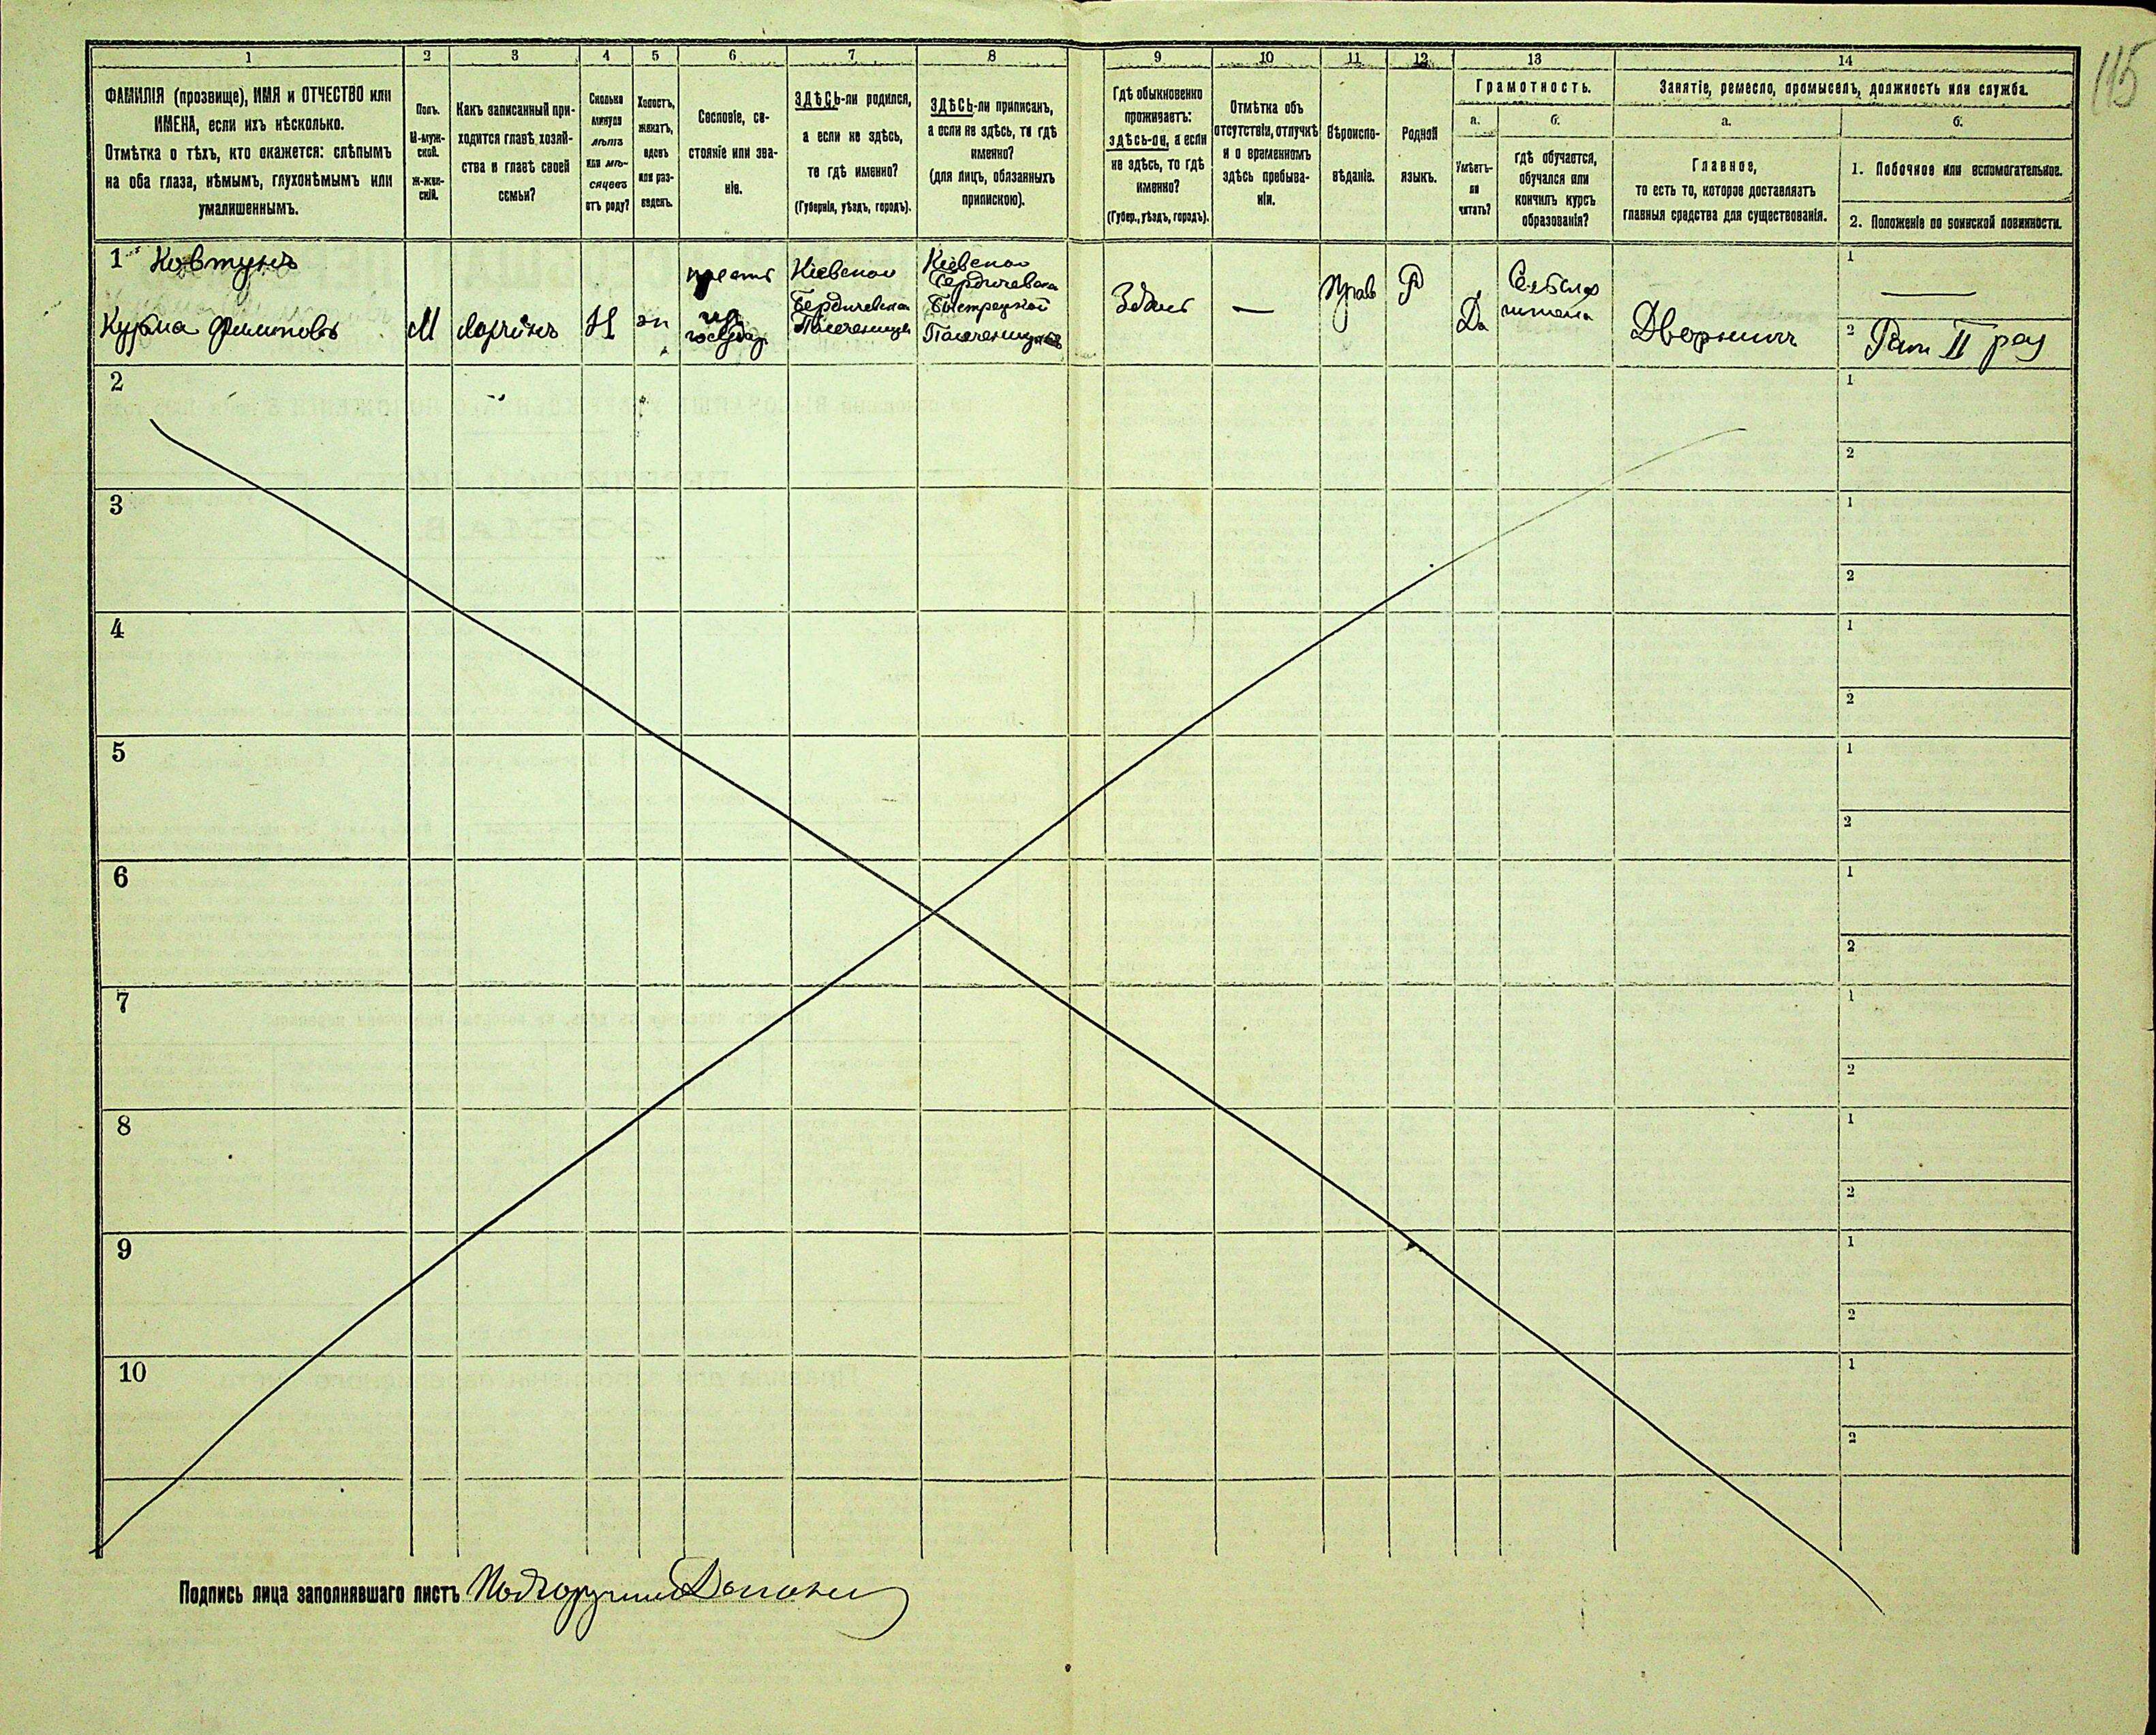 115
1
2
3
4
5
6
7
8
9
10
11
12
13
14
ФАМИЛІЯ (прозвище), ИМЯ и ОТЧЕСТВО или
ИМЕНА, если ихъ нѣсколько.
Отмѣтка о тѣхъ, кто окажется: слѣпымъ
на оба глаза, нѣмымъ, глухонѣмымъ или
умалишеннымъ.
Полъ.
М-муж-
ской.
Ж-жен-
скій.
Какъ записанный при-
ходится главѣ хозяй-
ства и главѣ своей
семьи?
Сколько
минуло
лѣтъ
или мѣ-
сяцевъ
отъ роду?
Холостъ,
женатъ,
вдовъ
или раз-
веденъ.
Сословіе, со-
стояніе или зва-
ніе.
ЗДѢСЬ-ли родился,
а если не здѣсь,
то гдѣ именно?
(Губернія, уѣздъ, городъ).
ЗДѢСЬ-ли приписанъ,
а если не здѣсь, то гдѣ
именно?
(для лицъ, обязанныхъ
припискою).
Гдѣ обыкновенно
проживаетъ:
здѣсь-ли, а если
не здѣсь, то гдѣ
именно?
(Губер., уѣздъ, городъ).
Отмѣтка объ
отсутствіи, отлучкѣ
и о временномъ
здѣсь пребыва-
ніи.
Вѣроиспо-
вѣданіе.
Родной
языкъ.
Грамотность.
а.
Умѣетъ-
ли
читать?
б.
гдѣ обучается,
обучался или
кончилъ курсъ
образованія?
Занятіе, ремесло, промыселъ, должность или служба.
а.
Главное,
то есть то, которое доставляетъ
главныя средства для существованія.
б.
1. Побочное или вспомогательное.
2. Положеніе по воинской повинности.
1
Ковтунъ
Кузьма Филиповъ
М
41
из
государ
Кіевской
Бердичевска
Кіевской
Бердичевска
Быстрецкой
Здесь
—
Прав
Р
Да
Дворникъ
1
—
2
Рат II раз
2
1
2
3
1
2
4
1
2
5
1
2
6
1
2
7
1
2
8
1
2
9
1
2
10
1
2
Подпись лица заполнявшаго листъ